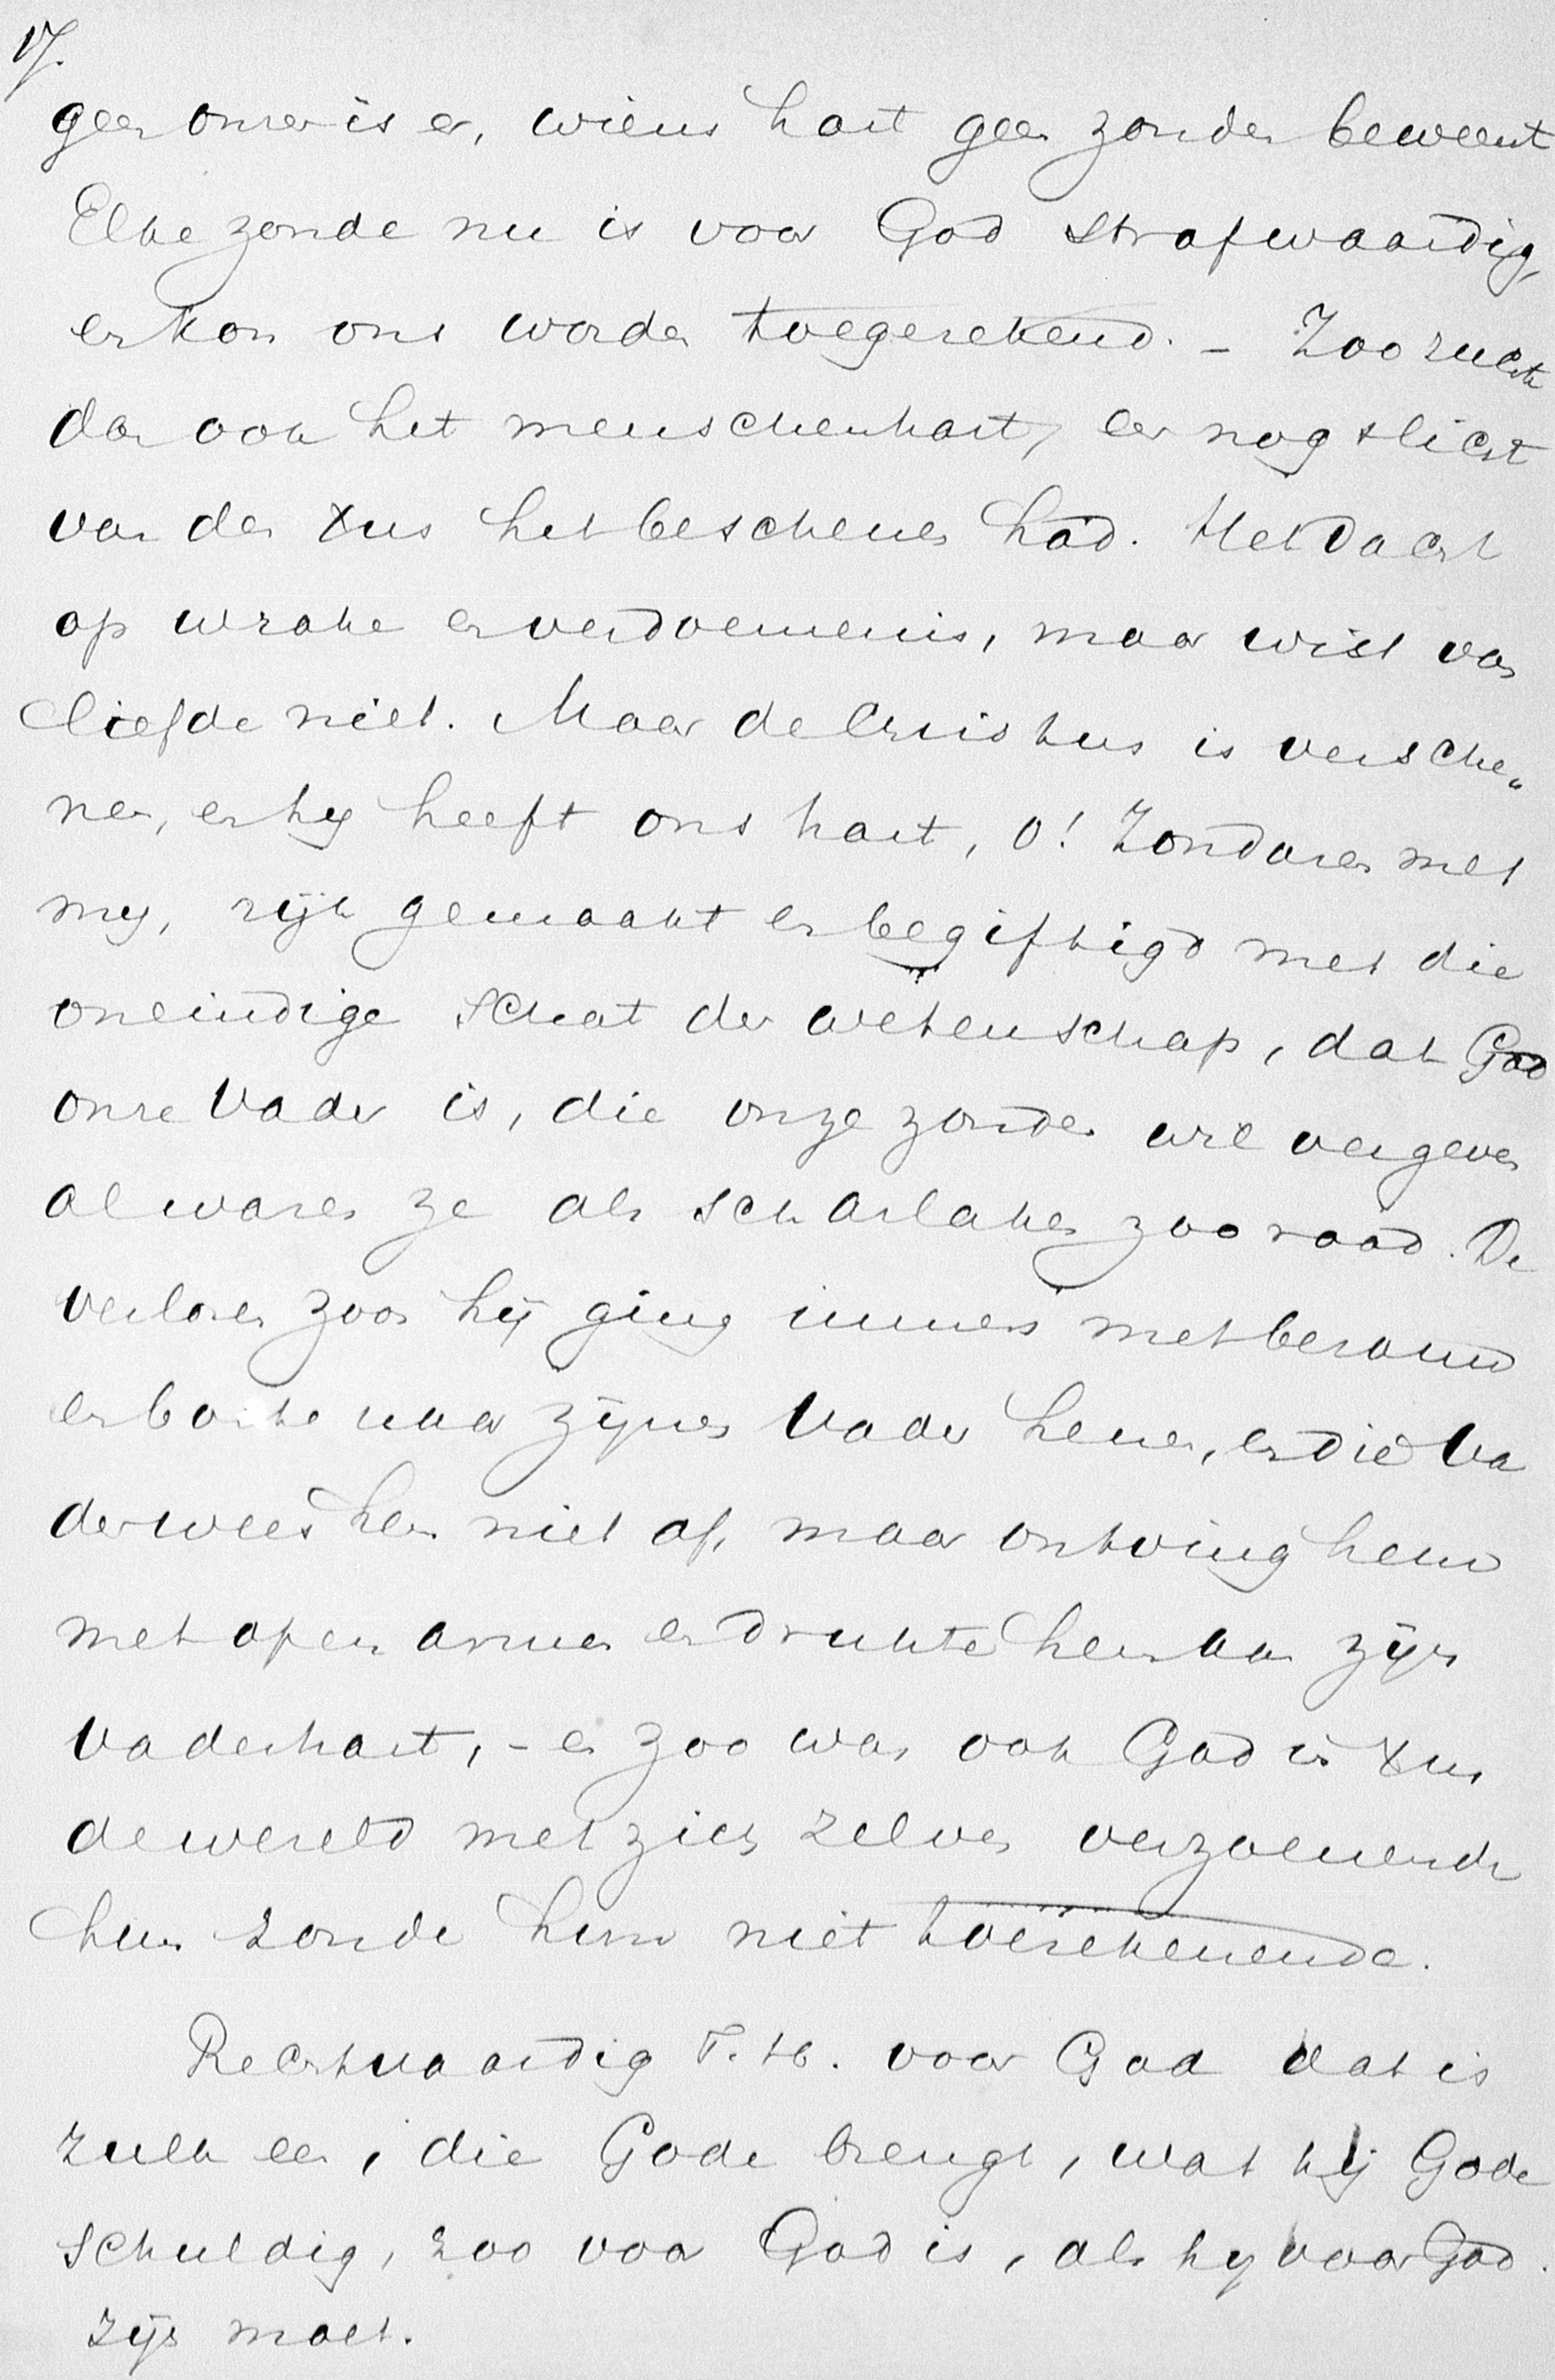 17.
geen onzer is er, wiens hart geen zonden beweent
Elke zonde nu is voor God strafwaardig,
en kon ons worden toegerekend. – Zoo zuchtte
dan ook het menschenhart, eer nog 't licht
van den Xus het beschenen had. Het dacht
op wrake en verdoemenis, maar wist van
liefde niet. Maar de Christus is versche„
nen, en hy heeft ons hart, o! Zondaren met
my, rijk gemaakt en begiftigd met die
oneindige schat der wetenschap, dat God
onze Vader is, die onze zonden wil vergeven
al waren ze als scharlaken zoo rood. De
verloren zoon hij ging immers met berouw
en boete naar zijnen Vader henen, en die Va
der wees hem niet af, maar ontving hem
met open armen en drukte hem aan zijn
vaderhart, – en zoo was ook God in Xus
de wereld met zich zelven verzoenende
hun zonde hun niet toerekenende.
Rechtvaardig T. H. voor God dat is
zulk een, die Gode brengt, wat hij Gode
schuldig, zoo voor God is, als hy voor God
zijn moet.